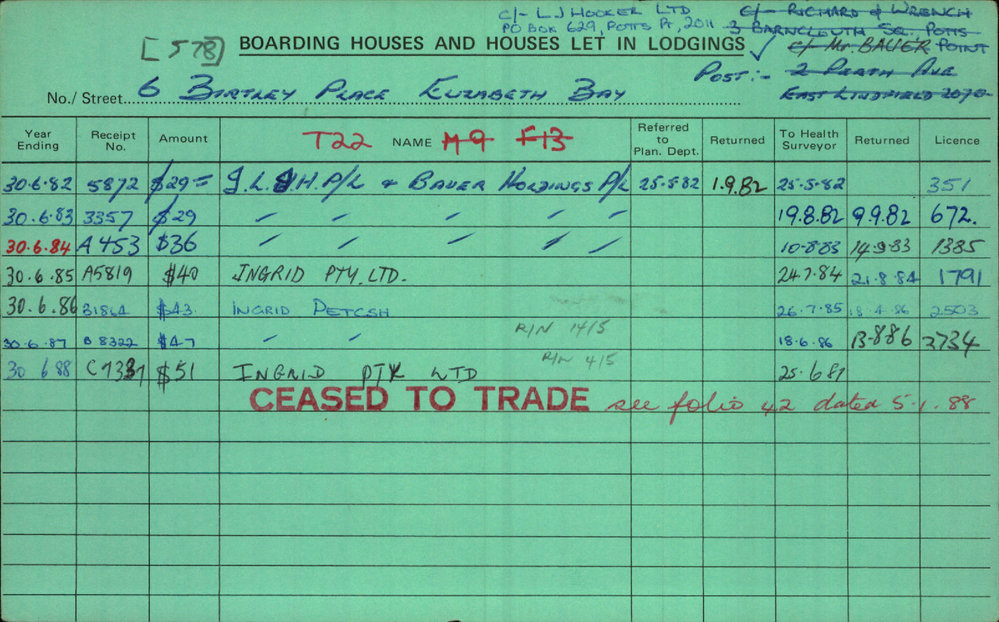 C/- L J HOOKER LTD C/- RICHARD & WRENCH
PO BOX 629, POTTS Pt, 2011 3 BARNCLEUTH SQ. POTTS
[578] BOARDING HOUSES AND HOUSES LET IN LODGINGS ✓ C/- Mr. BAUER POINT
POST:- 2 PEATH AVE
No./ Street 6 BIRTLEY PLACE ELIZABETH BAY EAST LINDFIELD 2070
Year Ending Receipt No. Amount T22 NAME M9 F13 Referred to Plan. Dept. Returned To Health Surveyor Returned Licence
30.6.82 5872 $29= J.L.H. P/L & BAUER HOLDINGS P/L 25.5.82 1.9.82 25.5.82 351
30.6.83 3357 $29 〃 〃 〃 〃 〃 19.8.82 9.9.82 672.
30.6.84 A453 $36 〃 〃 〃 〃 〃 10-8-83 14-9-83 1385
30.6.85 A5819 $40 INGRID PTY. LTD. 24.7.84 21.8.84 1791
30.6.86 B1864 $43 INGRID PETCSH 26.7.85 18.4.86 2503
R/N 14/5
30.6.87 B8322 $47 〃 〃 18.6.86 13-8-86 2734
R/N 4/5
30 6 88 C7337 $51 INGRID PTY LTD 25.6.87
CEASED TO TRADE see folio 42 dated 5.1.88